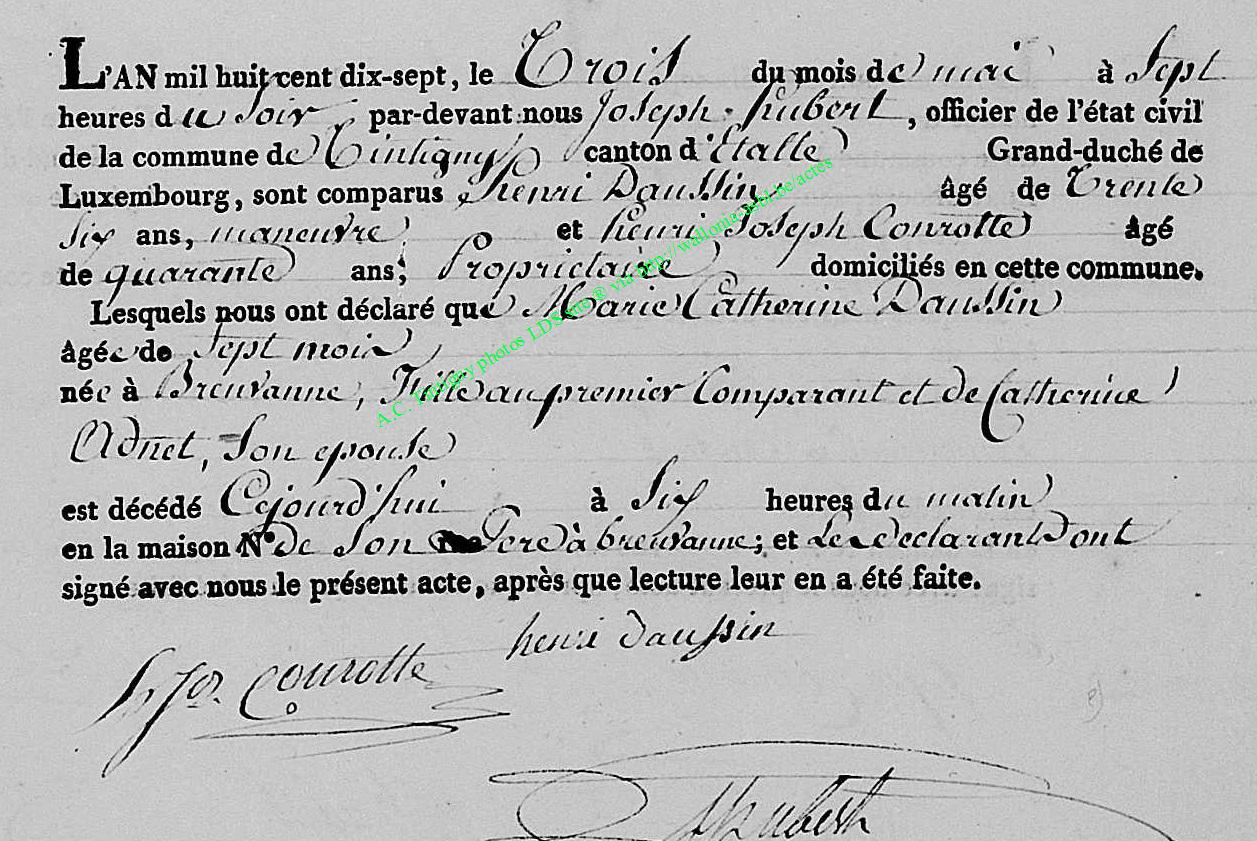 L'AN mil huit cent dix-sept, le Trois du mois de mai à Sept
heures du Soir, par-devant nous Joseph hubert, officier de l'état civil
de la commune de Tintigny canton d'Etalle Grand-duché de
Luxembourg, sont comparus henri Daussin, âgé de Trente
Six ans, maneuvre, et henri Joseph Conrotte âgé
de quarante ans, Proprietaire domiciliés en cette commune.
Lesquels nous ont déclaré que Marie Catherine Daussin
âgée de Sept mois,
née à Breuvanne, fille au premier Comparant et de Catherine
Adnet, Son epouse
est décédé Cejourd'hui à Six heures du matin
en la maison N.º de Son Pere à breuvanne; et Les declarants ont
signé avec nous le présent acte, après que lecture leur en a été faite.
henri daussin
h jos. Conrotte
hubert
A.C. Tintigny photos LDS via http://wallonia-asbl.be/actes